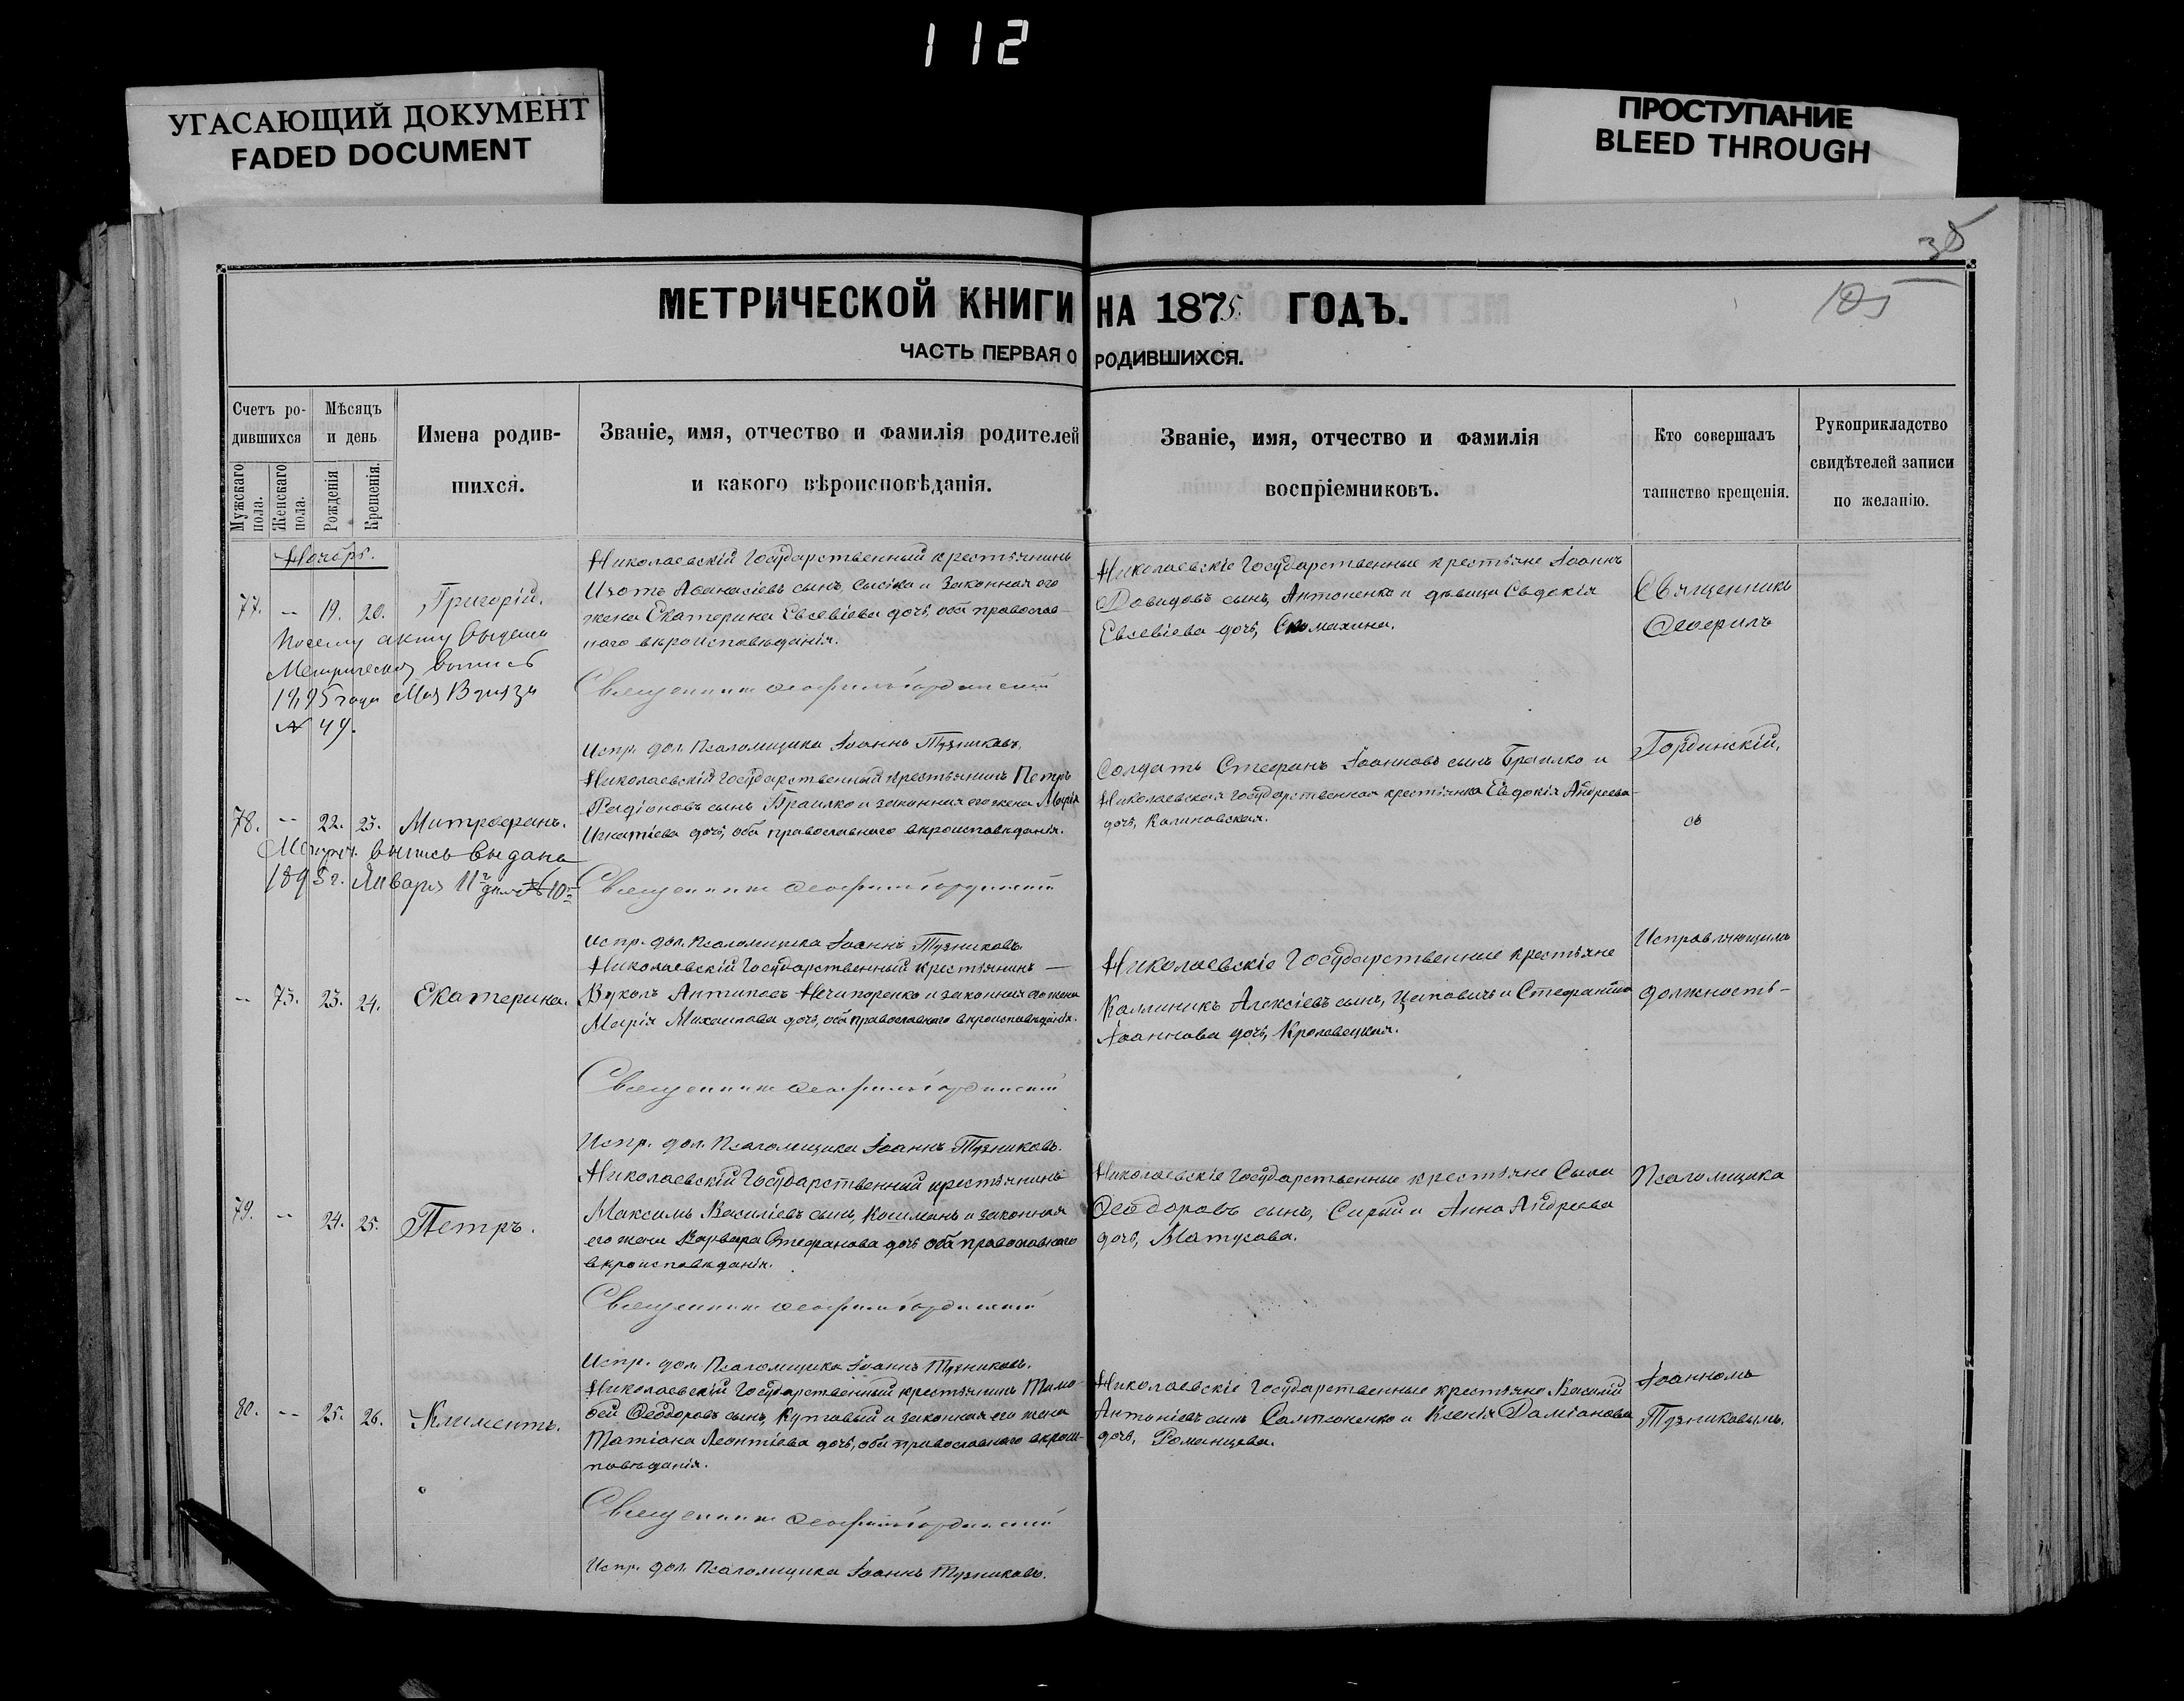 112
УГАСАЮЩИЙ ДОКУМЕНТ
FADED DOCUMENT
ПРОСТУПАНИЕ
BLEED THROUGH
35
105
МЕТРИЧЕСКОЙ КНИГИ НА 1875 ГОДЪ.
ЧАСТЬ ПЕРВАЯ О РОДИВШИХСЯ.
Счетъ ро-
дившихся
Мужскаго пола.
Женскаго пола.
Мѣсяцъ
и день
Рожденія
Крещенія.
Имена родив-
шихся.
Званіе, имя, отчество и фамилія родителей
и какого вѣроисповѣданія.
Званіе, имя, отчество и фамилія
воспріемниковъ.
Кто совершалъ
таинство крещенія.
Рукоприкладство
свидѣтелей записи
по желанію.
Ноябрь.
77. -- 19. 20. Григорій.
По сему акту выдана
Метрическая выпись
1895 года Мая
№ 49.
Николаевскій Государственный крестьянинъ
Изотъ Аѳанасіевъ сынъ, и законная его
жена Екатерина Евсевіева дочь, оба православ-
наго вѣроисповѣданія.
Священникъ Ѳеофилъ Гординскій
Испр. дол. Псаломщика Іоаннъ Тузниковъ.
Николаевскіе Государственные крестьяне Іоаннъ
Давидовъ сынъ, Антоненко и дѣвица Евдокія
Евсевіева дочь, Соломахина.
Священникъ
Ѳеофилъ
78. -- 22. 23. Митрофанъ.
Метрич. выпись выдана
1895 г. Января 11 дня № 10
Николаевскій Государственный крестьянинъ Петръ
Родіоновъ сынъ Браилко и законная его жена Марія
Игнатіева дочь, оба православнаго вѣроисповѣданія.
Священникъ Ѳеофилъ Гординскій
Испр. дол. Псаломщика Іоаннъ Тузниковъ.
Солдатъ Стефанъ Іоанновъ сынъ Браилко и
Николаевская Государственная крестьянка Евдокія Андреева
дочь, Калиновская.
Гординскій,
съ
-- 73. 23. 24. Екатерина.
Николаевскій Государственный крестьянинъ —
Вуколъ Антиповъ Нечипоренко и законная его жена
Марія Михаилова дочь, оба православнаго вѣроисповѣданія.
Священникъ Ѳеофилъ Гординскій
Испр. дол. Псаломщика Іоаннъ Тузниковъ.
Николаевскіе Государственные крестьяне
Каллиникъ Алексіевъ сынъ, и Стефанида
Іоаннова дочь, Кролевецкая.
Исправляющимъ
должность-
79. -- 24. 25. Петръ.
Николаевскій Государственный крестьянинъ
Максимъ Василіевъ сынъ, и законная
его жена Варвара Стефанова дочь оба православнаго
вѣроисповѣданія.
Священникъ Ѳеофилъ Гординскій
Испр. дол. Псаломщика Іоаннъ Тузниковъ.
Николаевскіе Государственные крестьяне Сила
Ѳеодоровъ сынъ, Сирый и Анна Андреева
дочь, Матусова.
Псаломщика
80. -- 25. 26. Климентъ.
Николаевскій Государственный крестьянинъ Тимо-
ѳей Ѳеодоровъ сынъ, и законная его жена
Татіана Леонтіева дочь, оба православнаго вѣроис-
повѣданія.
Священникъ Ѳеофилъ Гординскій
Испр. дол. Псаломщика Іоаннъ Тузниковъ.
Николаевскіе Государственные крестьяне Василій
Антоніевъ сынъ Сампсоненко и Ксенія Даміанова
дочь, Романцева.
Іоанномъ
Тузниковымъ.